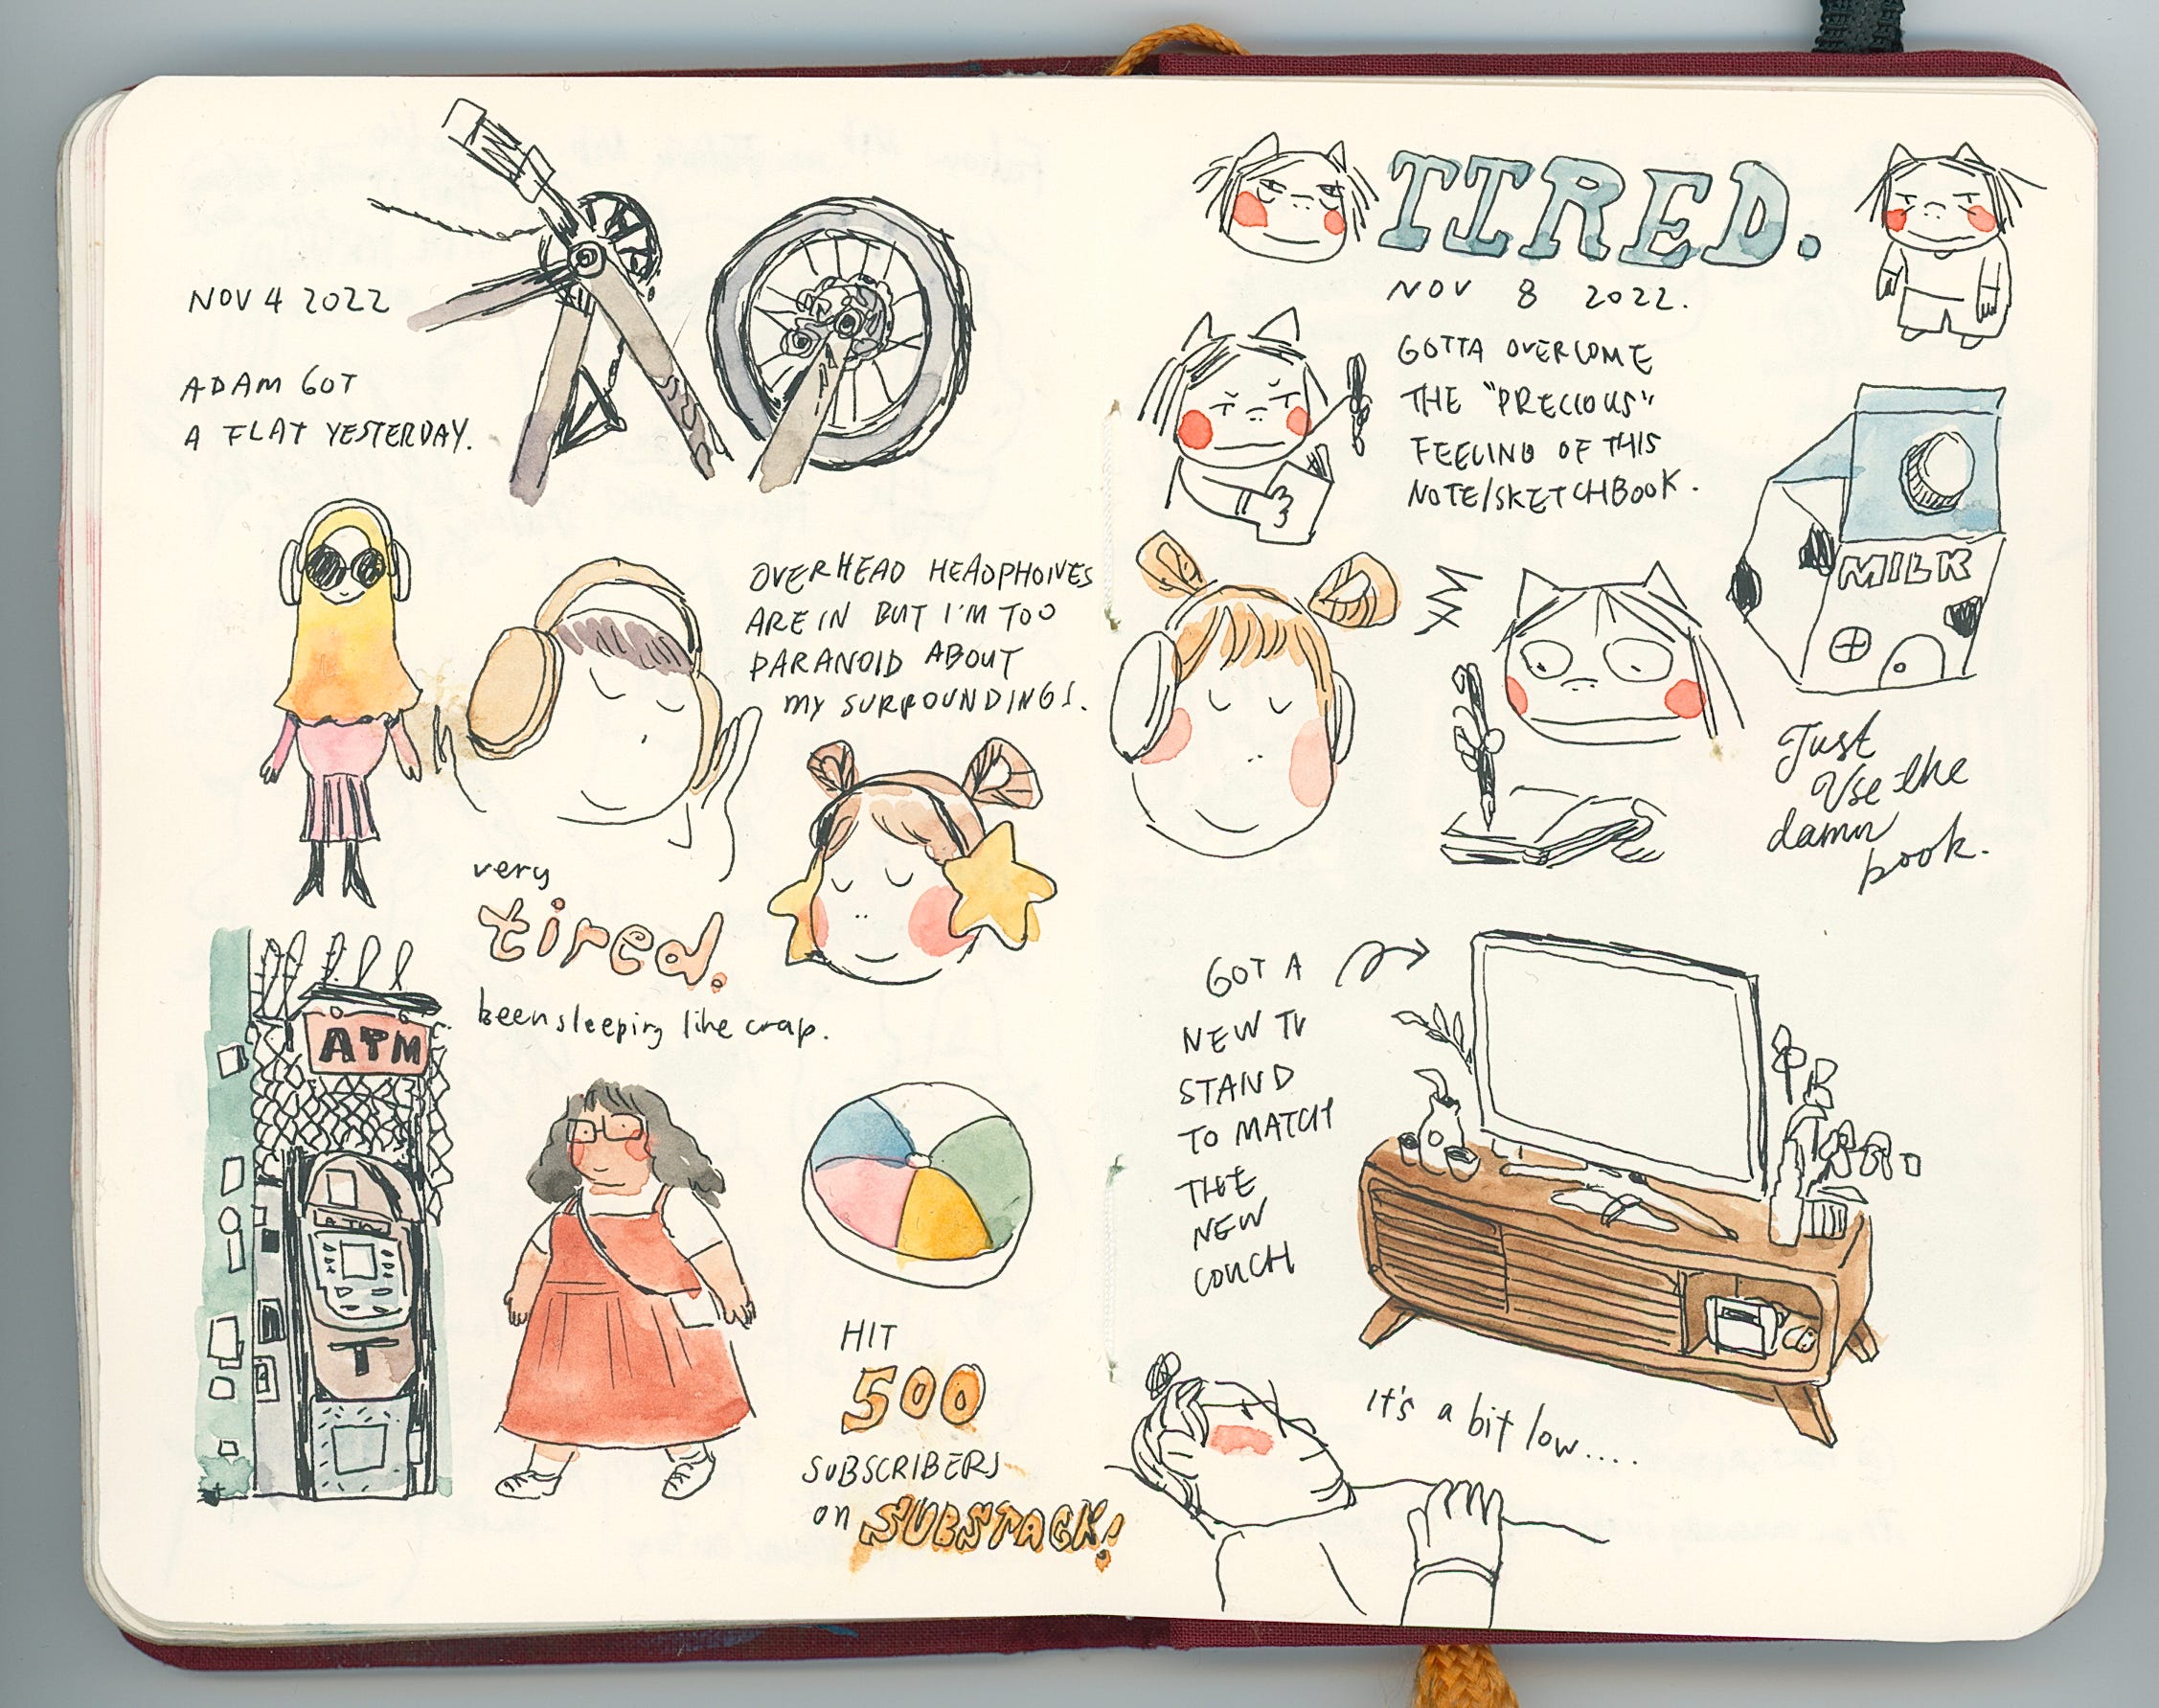 NOV 4 2022
ADAM GOT
A FLAT YESTERDAY.
OVERHEAD HEADPHONES
ARE IN BUT I'M TOO
PARANOID ABOUT
MY SURROUNDINGS.
very
tired.
been sleeping like crap.
ATM
ATM
T
HIT
500
SUBSCRIBERS
on SUBSTACK!
TIRED.
NOV 8 2022.
GOTTA OVERCOME
THE "PRECIOUS"
FEELING OF THIS
NOTE/SKETCHBOOK.
MILK
Just
Use the
damn
book.
GOT A
NEW TV
STAND
TO MATCH
THE
NEW
COUCH
It's a bit low....